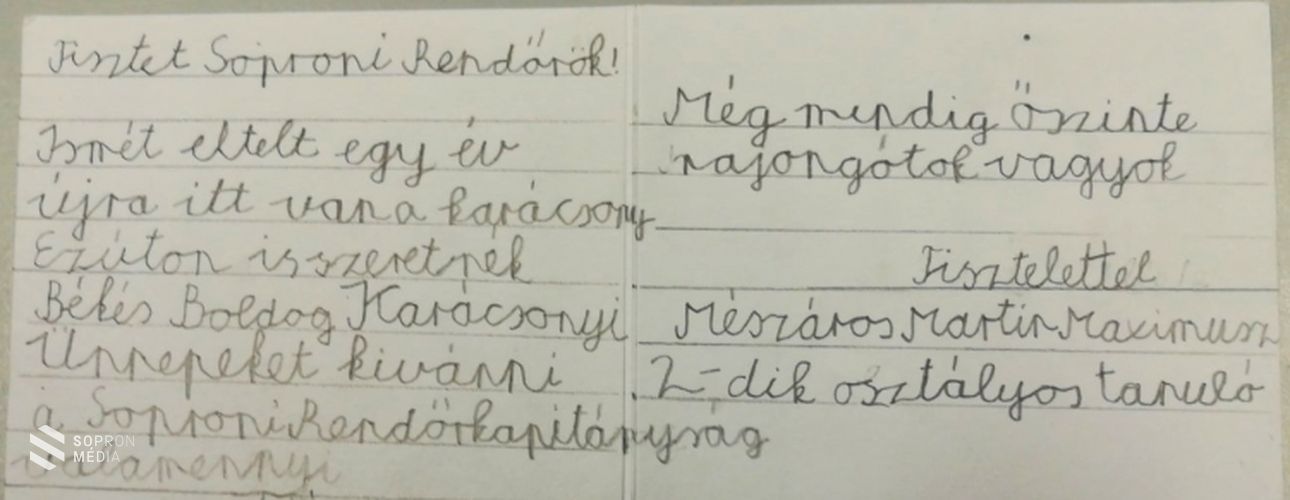 Tisztet Soproni Rendőrök!
Ismét eltelt egy év
újra itt van a karácsony
Ezúton is szeretnék
Békés Boldog Karácsonyi
Ünnepeket kivánni
a Soproni Rendőrkapitányság
valamennyi
Még mindig őszinte
rajongótok vagyok
Tisztelettel
Mészáros Martin Maximusz
2-dik osztályos tanuló
SOPRON
MÉDIA